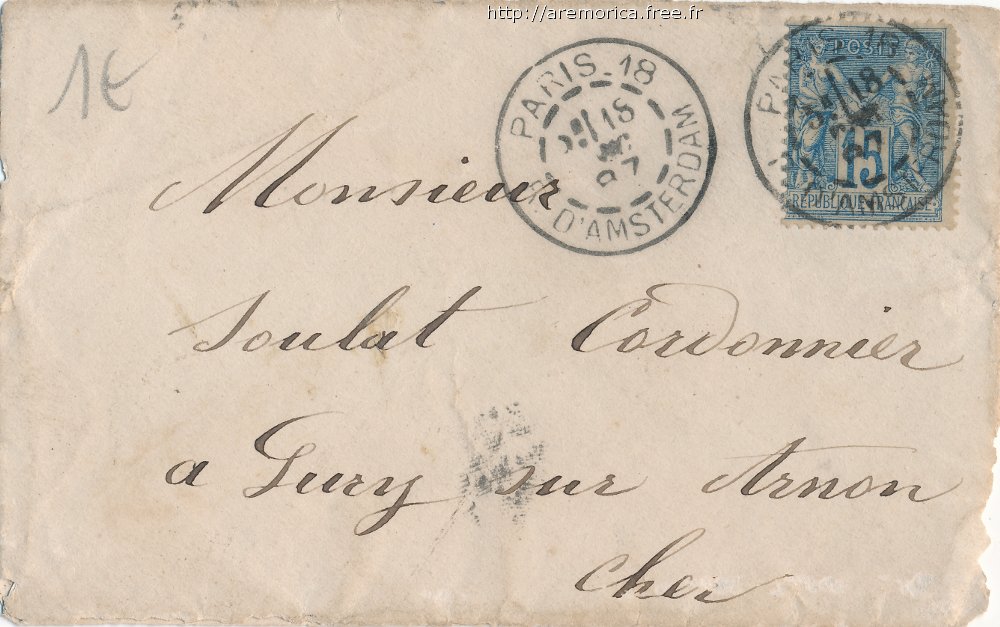 http://aremorica.free.fr
1€
PARIS. 18
R. D'AMSTERDAM
18
POSTE
15
REPUBLIQUE FRANÇAISE
PARIS. 18
Monsieur
Soulat Cordonnier
a Lury sur Arnon
Cher